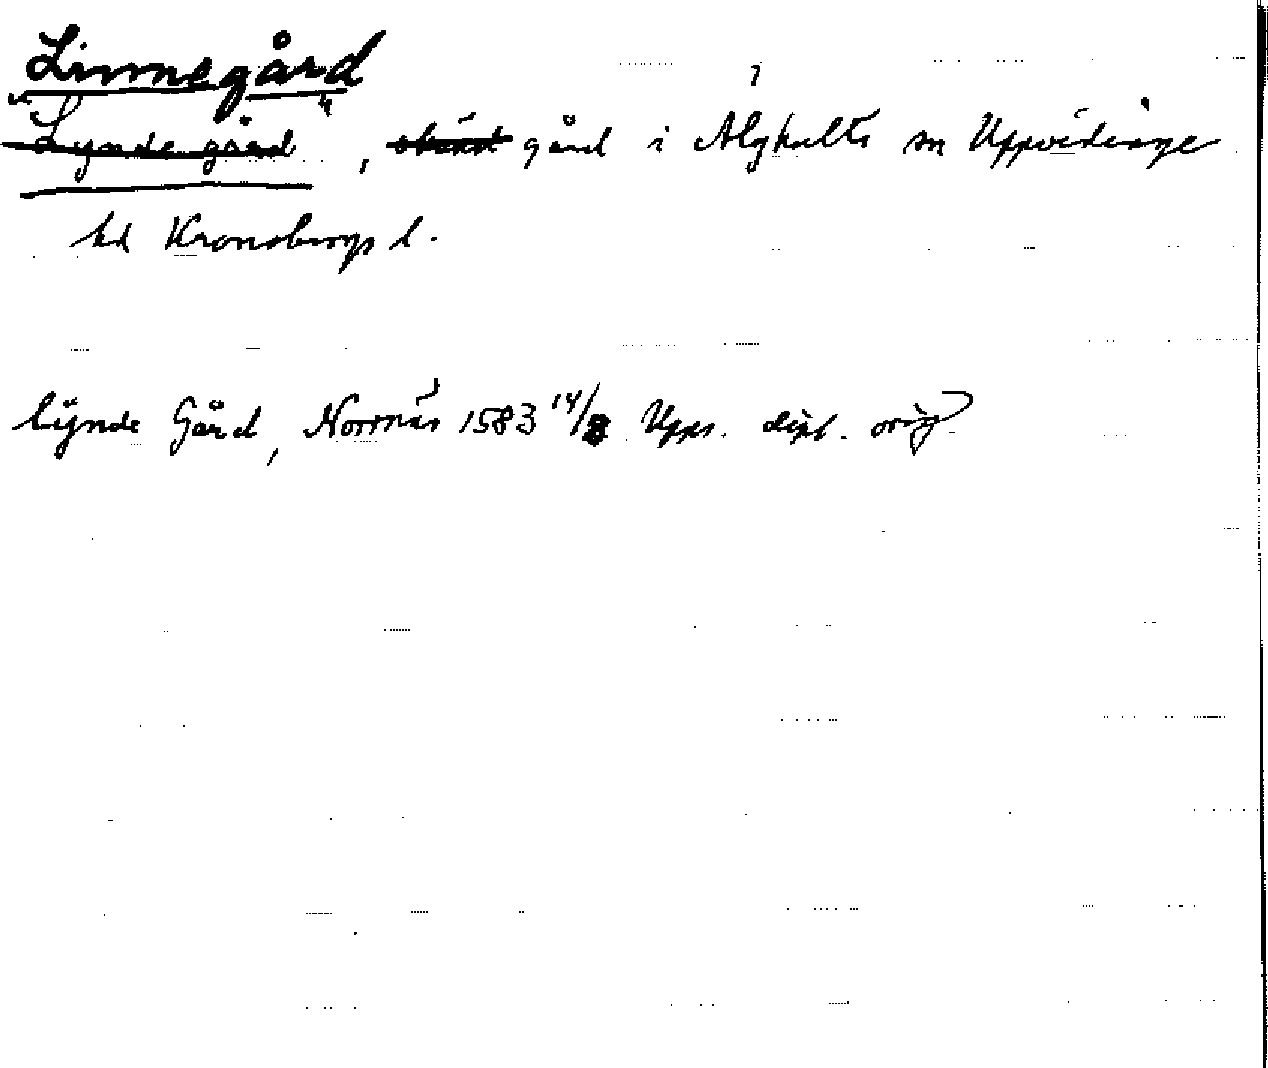 Linnegård
Lynde gård, okänd gård i Älghults sn Uppvidinge
hd Kronobergs l.
lÿnde Gård, Norrnäs 1583 14/8 Upps. dipl. orig